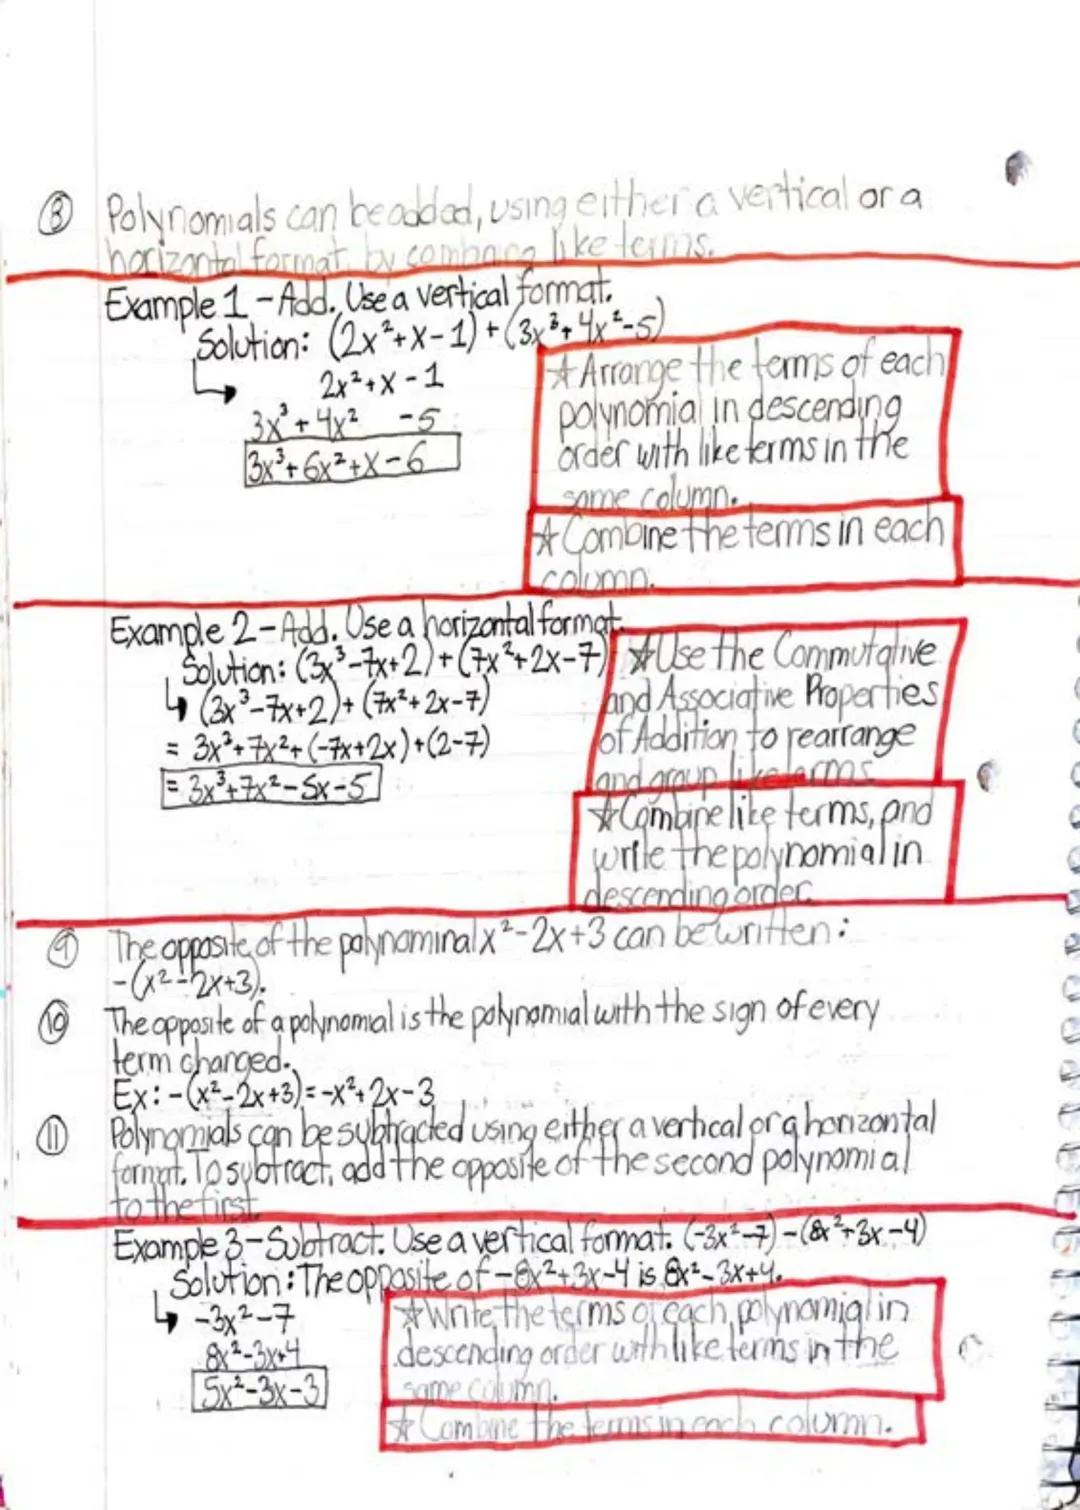 ⑧ Polynomials can be added, using either a vertical or a
horizontal format, by combaing like terms.
Example 1 - Add. Use a vertical format.
Solution: (2x²+x-1)+(3x³+4x²-5)
2x²+x-1
3x³+4x² -5
3x³+6x²+x-6
☆Arrange the terms of each
polynomial in descending
order with like terms in the
same column.
☆Combine the terms in each
column.
Example 2 - Add. Use a horizontal format.
Solution: (3x³-7x+2)+(7x²+2x-7)
↳ (3x³-7x+2)+(7x²+2x-7)
= 3x³+7x²+(-7x+2x)+(2-7)
= 3x³+7x²-5x-5
☆Use the Commutative
and Associative Properties
of Addition to rearrange
and group like terms
☆Combine like terms, and
write the polynomial in
descending order.
⑨ The opposite of the polynominal x²-2x+3 can be written:
-(x²-2x+3).
⑩ The opposite of a polynomial is the polynomial with the sign of every
term changed.
Ex: -(x²-2x+3)=-x²+2x-3
⑪ Polynomials can be subtracted using either a vertical or a horizontal
format. To subtract, add the opposite of the second polynomial
to the first.
Example 3 - Subtract. Use a vertical format. (-3x²-7)-(8x²+3x-4)
Solution: The opposite of -8x²+3x-4 is 8x²-3x+4.
↳ -3x²-7
8x²-3x+4
5x²-3x-3
☆Write the terms of each polynomial in
descending order with like terms in the
same column.
☆Combine the terms in each column.